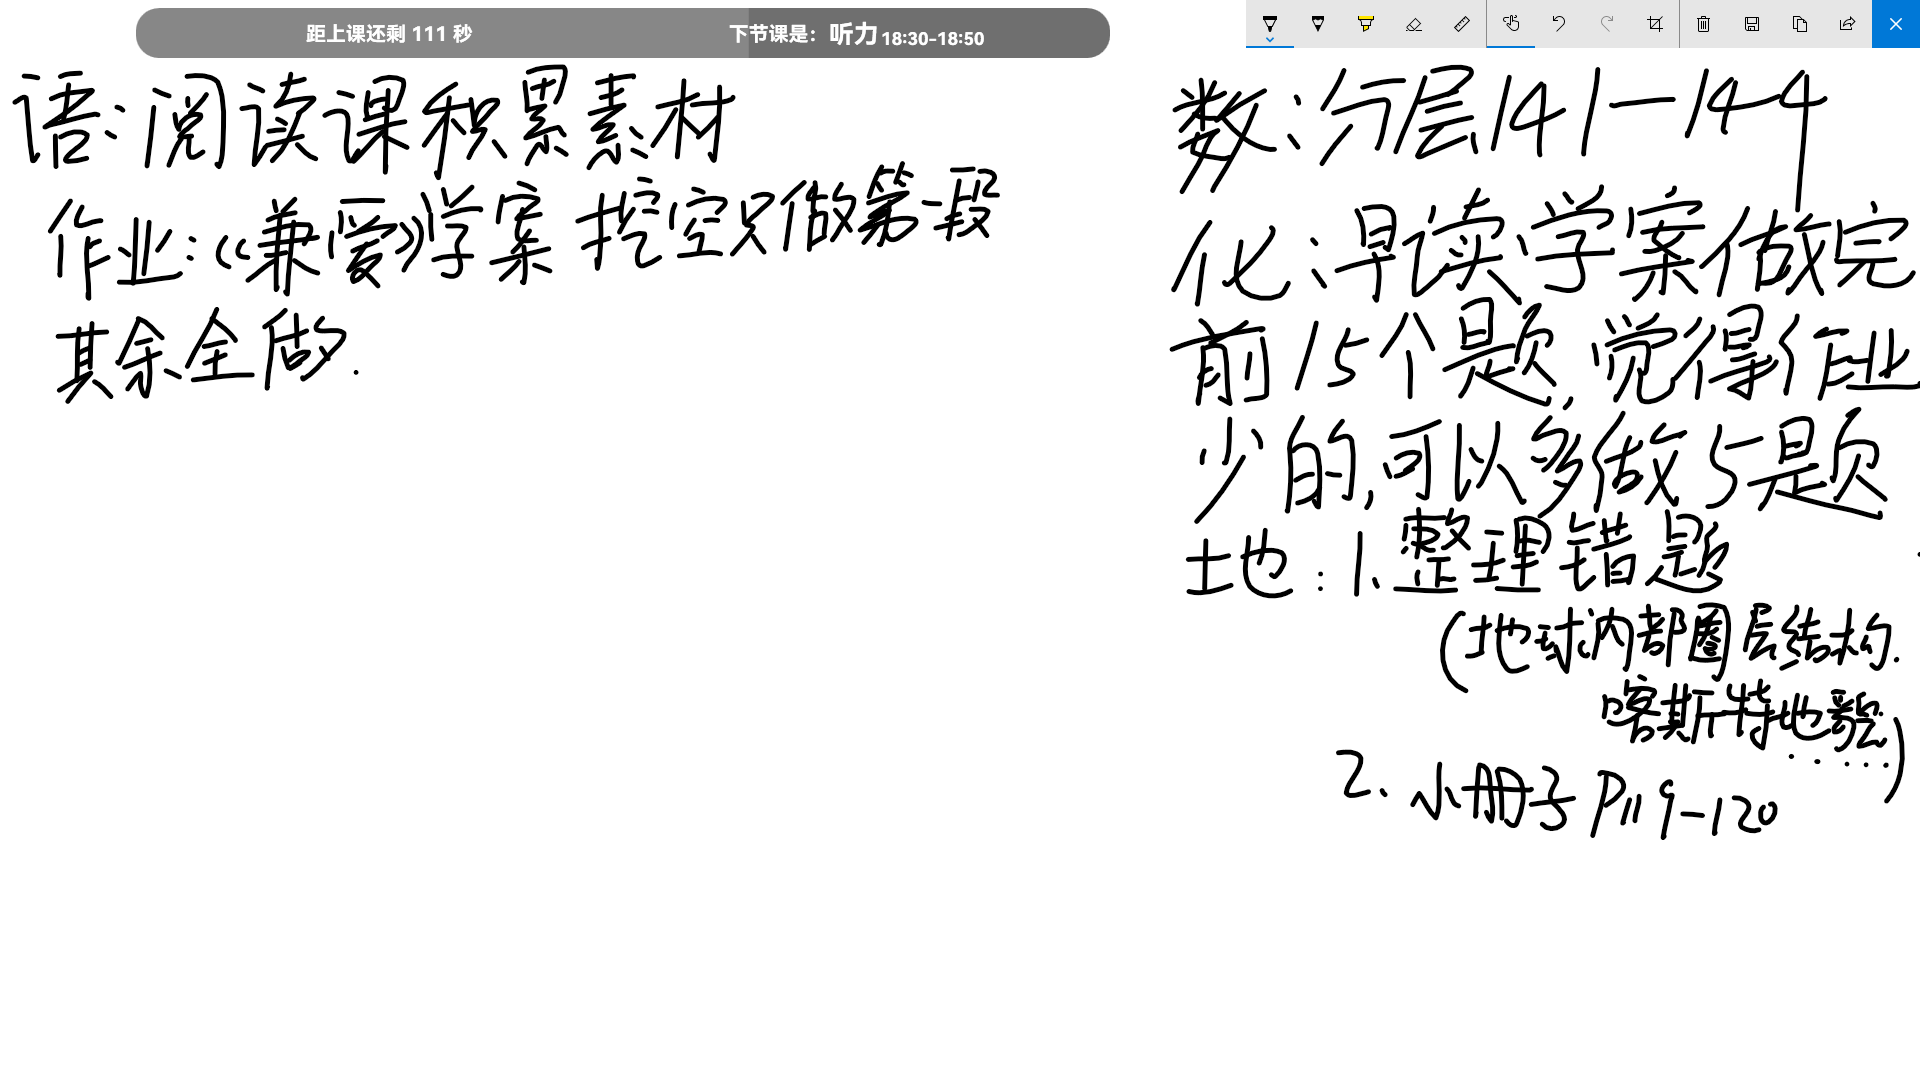 距上课还剩 111 秒
下节课是：听力 18:30-18:50
语：阅读课积累素材
作业：《兼爱》学案 挖空只做第一段
其余全做.
数：分层141—144
化：早读学案做完
前15个题，觉得作业
少的，可以多做5题
地：1、整理错题
（地球内部圈层结构.
喀斯特地貌......）
2、小册子 P119-120